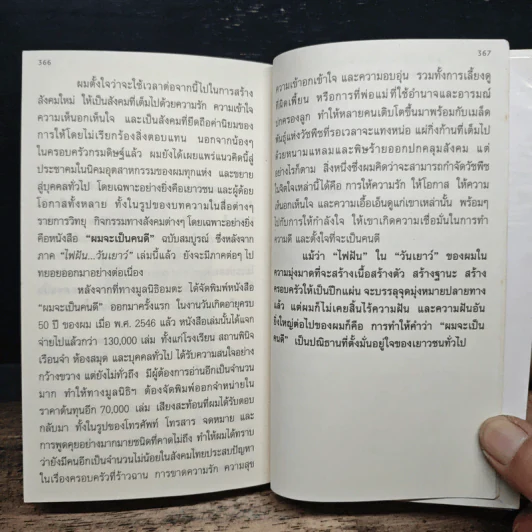 366
ผมตั้งใจว่าจะใช้เวลาต่อจากนี้ไปในการสร้าง
สังคมใหม่ ให้เป็นสังคมที่เต็มไปด้วยความรัก ความเข้าใจ
ความเห็นอกเห็นใจ และเป็นสังคมที่ยึดถือค่านิยมของ
การให้โดยไม่เรียกร้องสิ่งตอบแทน นอกจากน้องๆ
ในครอบครัวกรมดิษฐ์แล้ว ผมยังได้เผยแพร่แนวคิดนี้สู่
ประชาคมในนิคมอุตสาหกรรมของผมทุกแห่ง และขยาย
สู่บุคคลทั่วไป โดยเฉพาะอย่างยิ่งคือเยาวชน และผู้ด้อย
โอกาสทั้งหลาย ทั้งในรูปของบทความในสื่อต่างๆ
รายการวิทยุ กิจกรรมทางสังคมต่างๆ โดยเฉพาะอย่างยิ่ง
คือหนังสือ “ผมจะเป็นคนดี” ฉบับสมบูรณ์ ซึ่งหลังจาก
ภาค “ไฟฝัน...วันเยาว์” เล่มนี้แล้ว ยังจะมีภาคต่อๆ ไป
ทยอยออกมาอย่างต่อเนื่อง
หลังจากที่ทางมูลนิธิอมตะ ได้จัดพิมพ์หนังสือ
“ผมจะเป็นคนดี” ออกมาครั้งแรก ในงานวันเกิดอายุครบ
50 ปี ของผม เมื่อ พ.ศ. 2546 แล้ว หนังสือเล่มนั้นได้แจก
จ่ายไปแล้วกว่า 130,000 เล่ม ทั้งแก่โรงเรียน สถานพินิจ
เรือนจำ ห้องสมุด และบุคคลทั่วไป ได้รับความสนใจอย่าง
กว้างขวาง แต่ยังไม่ทั่วถึง มีผู้ต้องการอ่านอีกเป็นจำนวน
มาก ทำให้ทางมูลนิธิฯ ต้องจัดพิมพ์ออกจำหน่ายใน
ราคาต้นทุนอีก 70,000 เล่ม เสียงสะท้อนที่ผมได้รับตอบ
กลับมา ทั้งในรูปของโทรศัพท์ โทรสาร จดหมาย และ
การพูดคุยอย่างมากมายชนิดที่คาดไม่ถึง ทำให้ผมได้ทราบ
ว่ายังมีคนอีกเป็นจำนวนไม่น้อยในสังคมไทยประสบปัญหา
ในเรื่องครอบครัวที่ร้าวฉาน การขาดความรัก ความสุข
367
ความเข้าอกเข้าใจ และความอบอุ่น รวมทั้งการเลี้ยงดู
ที่ผิดเพี้ยน หรือการที่พ่อแม่ ที่ใช้อำนาจและอารมณ์
ปกครองลูก ทำให้หลายคนเติบโตขึ้นมาพร้อมกับเมล็ด
พันธุ์แห่งวัชพืชที่รอเวลาจะแทงหน่อ แผ่กิ่งก้านที่เต็มไป
ด้วยหนามแหลมและพิษร้ายออกปกคลุมสังคม แต่
อย่างไรก็ตาม สิ่งหนึ่งซึ่งผมคิดว่าจะสามารถกำจัดวัชพืช
ในจิตใจเหล่านี้ได้คือ การให้ความรัก ให้โอกาส ให้ความ
เห็นอกเห็นใจ และความเอื้อเอ็นดูแก่เขาเหล่านั้น พร้อมๆ
ไปกับการให้กำลังใจ ให้เขาเกิดความเชื่อมั่นในการทำ
ความดี และตั้งใจที่จะเป็นคนดี
แม้ว่า “ไฟฝัน” ใน “วันเยาว์” ของผมใน
ความมุ่งมาดที่จะสร้างเนื้อสร้างตัว สร้างฐานะ สร้าง
ครอบครัวให้เป็นปึกแผ่น จะบรรลุจุดมุ่งหมายปลายทาง
แล้ว แต่ผมก็ไม่เคยสิ้นไร้ความฝัน และความฝันอัน
ยิ่งใหญ่ต่อไปของผมก็คือ การทำให้คำว่า “ผมจะเป็น
คนดี” เป็นปณิธานที่ตั้งมั่นอยู่ในใจของเยาวชนทั่วไป